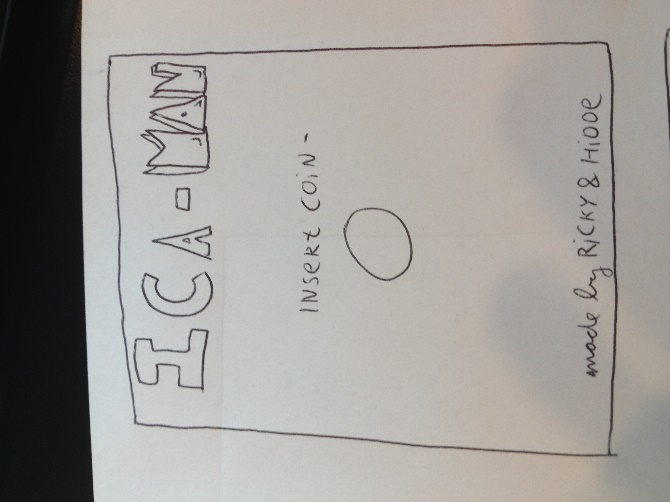 ICA-MAN
INSERT COiN-
made by RiCKY & HiDDE